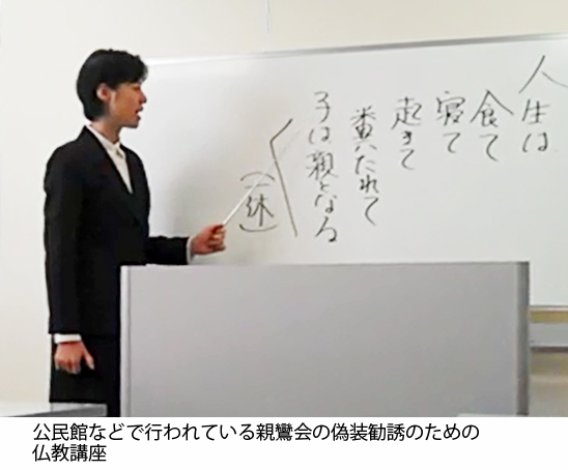 人生は
食て
寝て
起きて
糞たれて
子は親となる
(一休)
公民館などで行われている親鸞会の偽装勧誘のための
仏教講座